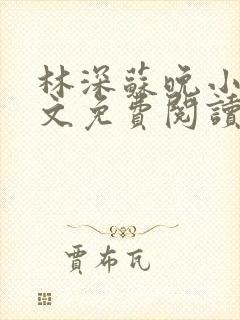 林深蘇晚小
文免費閱讀
賈布瓦